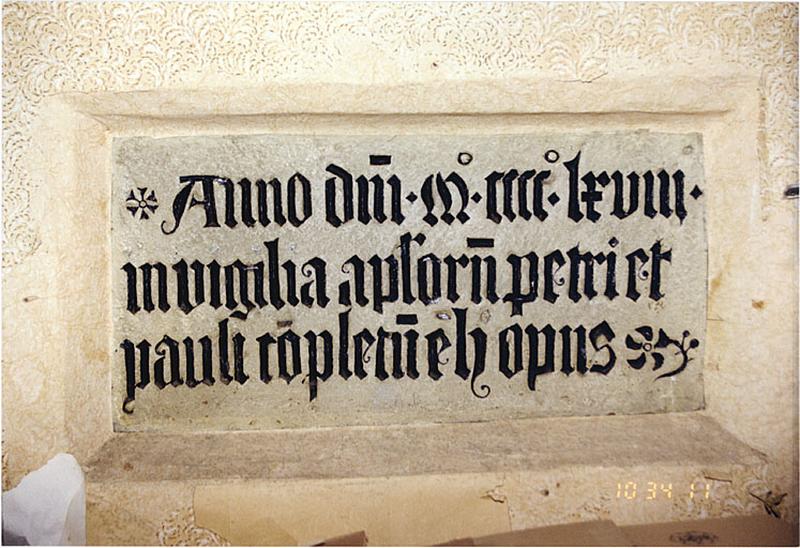 Anno dm̄i · M° · cccc° · lxviii ·
in vigilia apſorū petri et
pauli cōpletū ē h opus
10 34 11